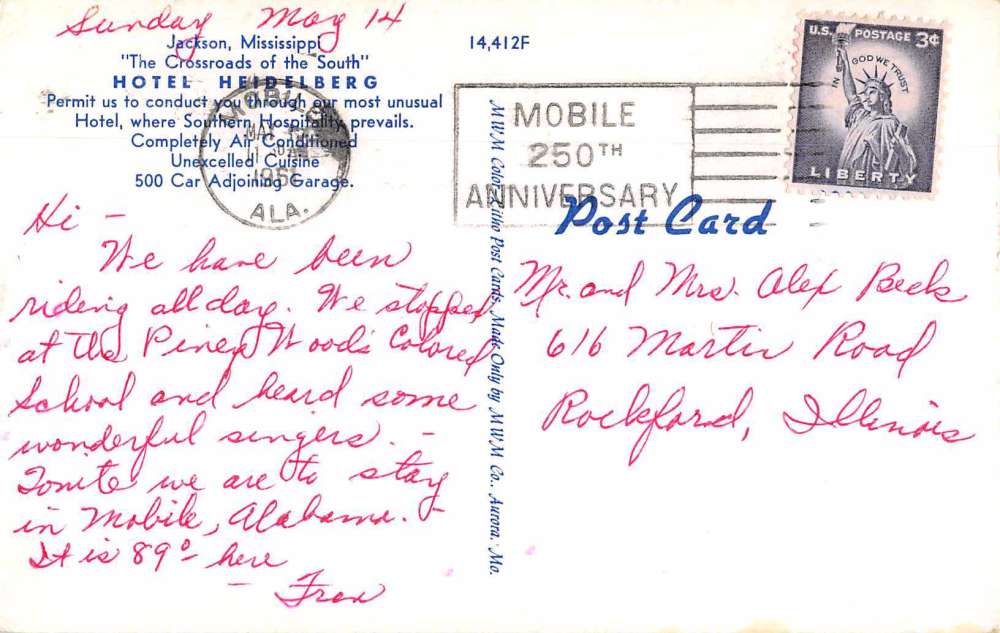 Sunday May 14
Jackson, Mississippi
"The Crossroads of the South"
HOTEL HEIDELBERG
Permit us to conduct you through our most unusual
Hotel, where Southern Hospitality prevails.
Completely Air Conditioned
Unexcelled Cuisine
500 Car Adjoining Garage.
14,412F
MOBILE
MAY
ALA.
MOBILE
250TH
ANNIVERSARY
U.S. POSTAGE 3¢
IN GOD WE TRUST
LIBERTY
Post Card
Hi -
We have been
riding all day. We stopped
at the Piney Woods Colored
School and heard some
wonderful singers. -
Tonite we are to stay
in Mobile, Alabama. -
It is 89° here
- Fran
MWM Color-Litho Post Cards, Made Only by MWM Co., Aurora, Mo.
Mr. and Mrs. Alex Beck
616 Martin Road
Rockford, Illinois